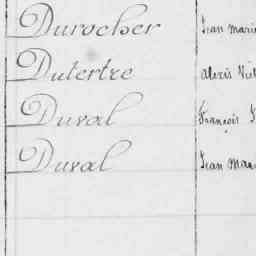 Durocher Jean Marie
Dutertre Alexis
Duval François
Duval Jean